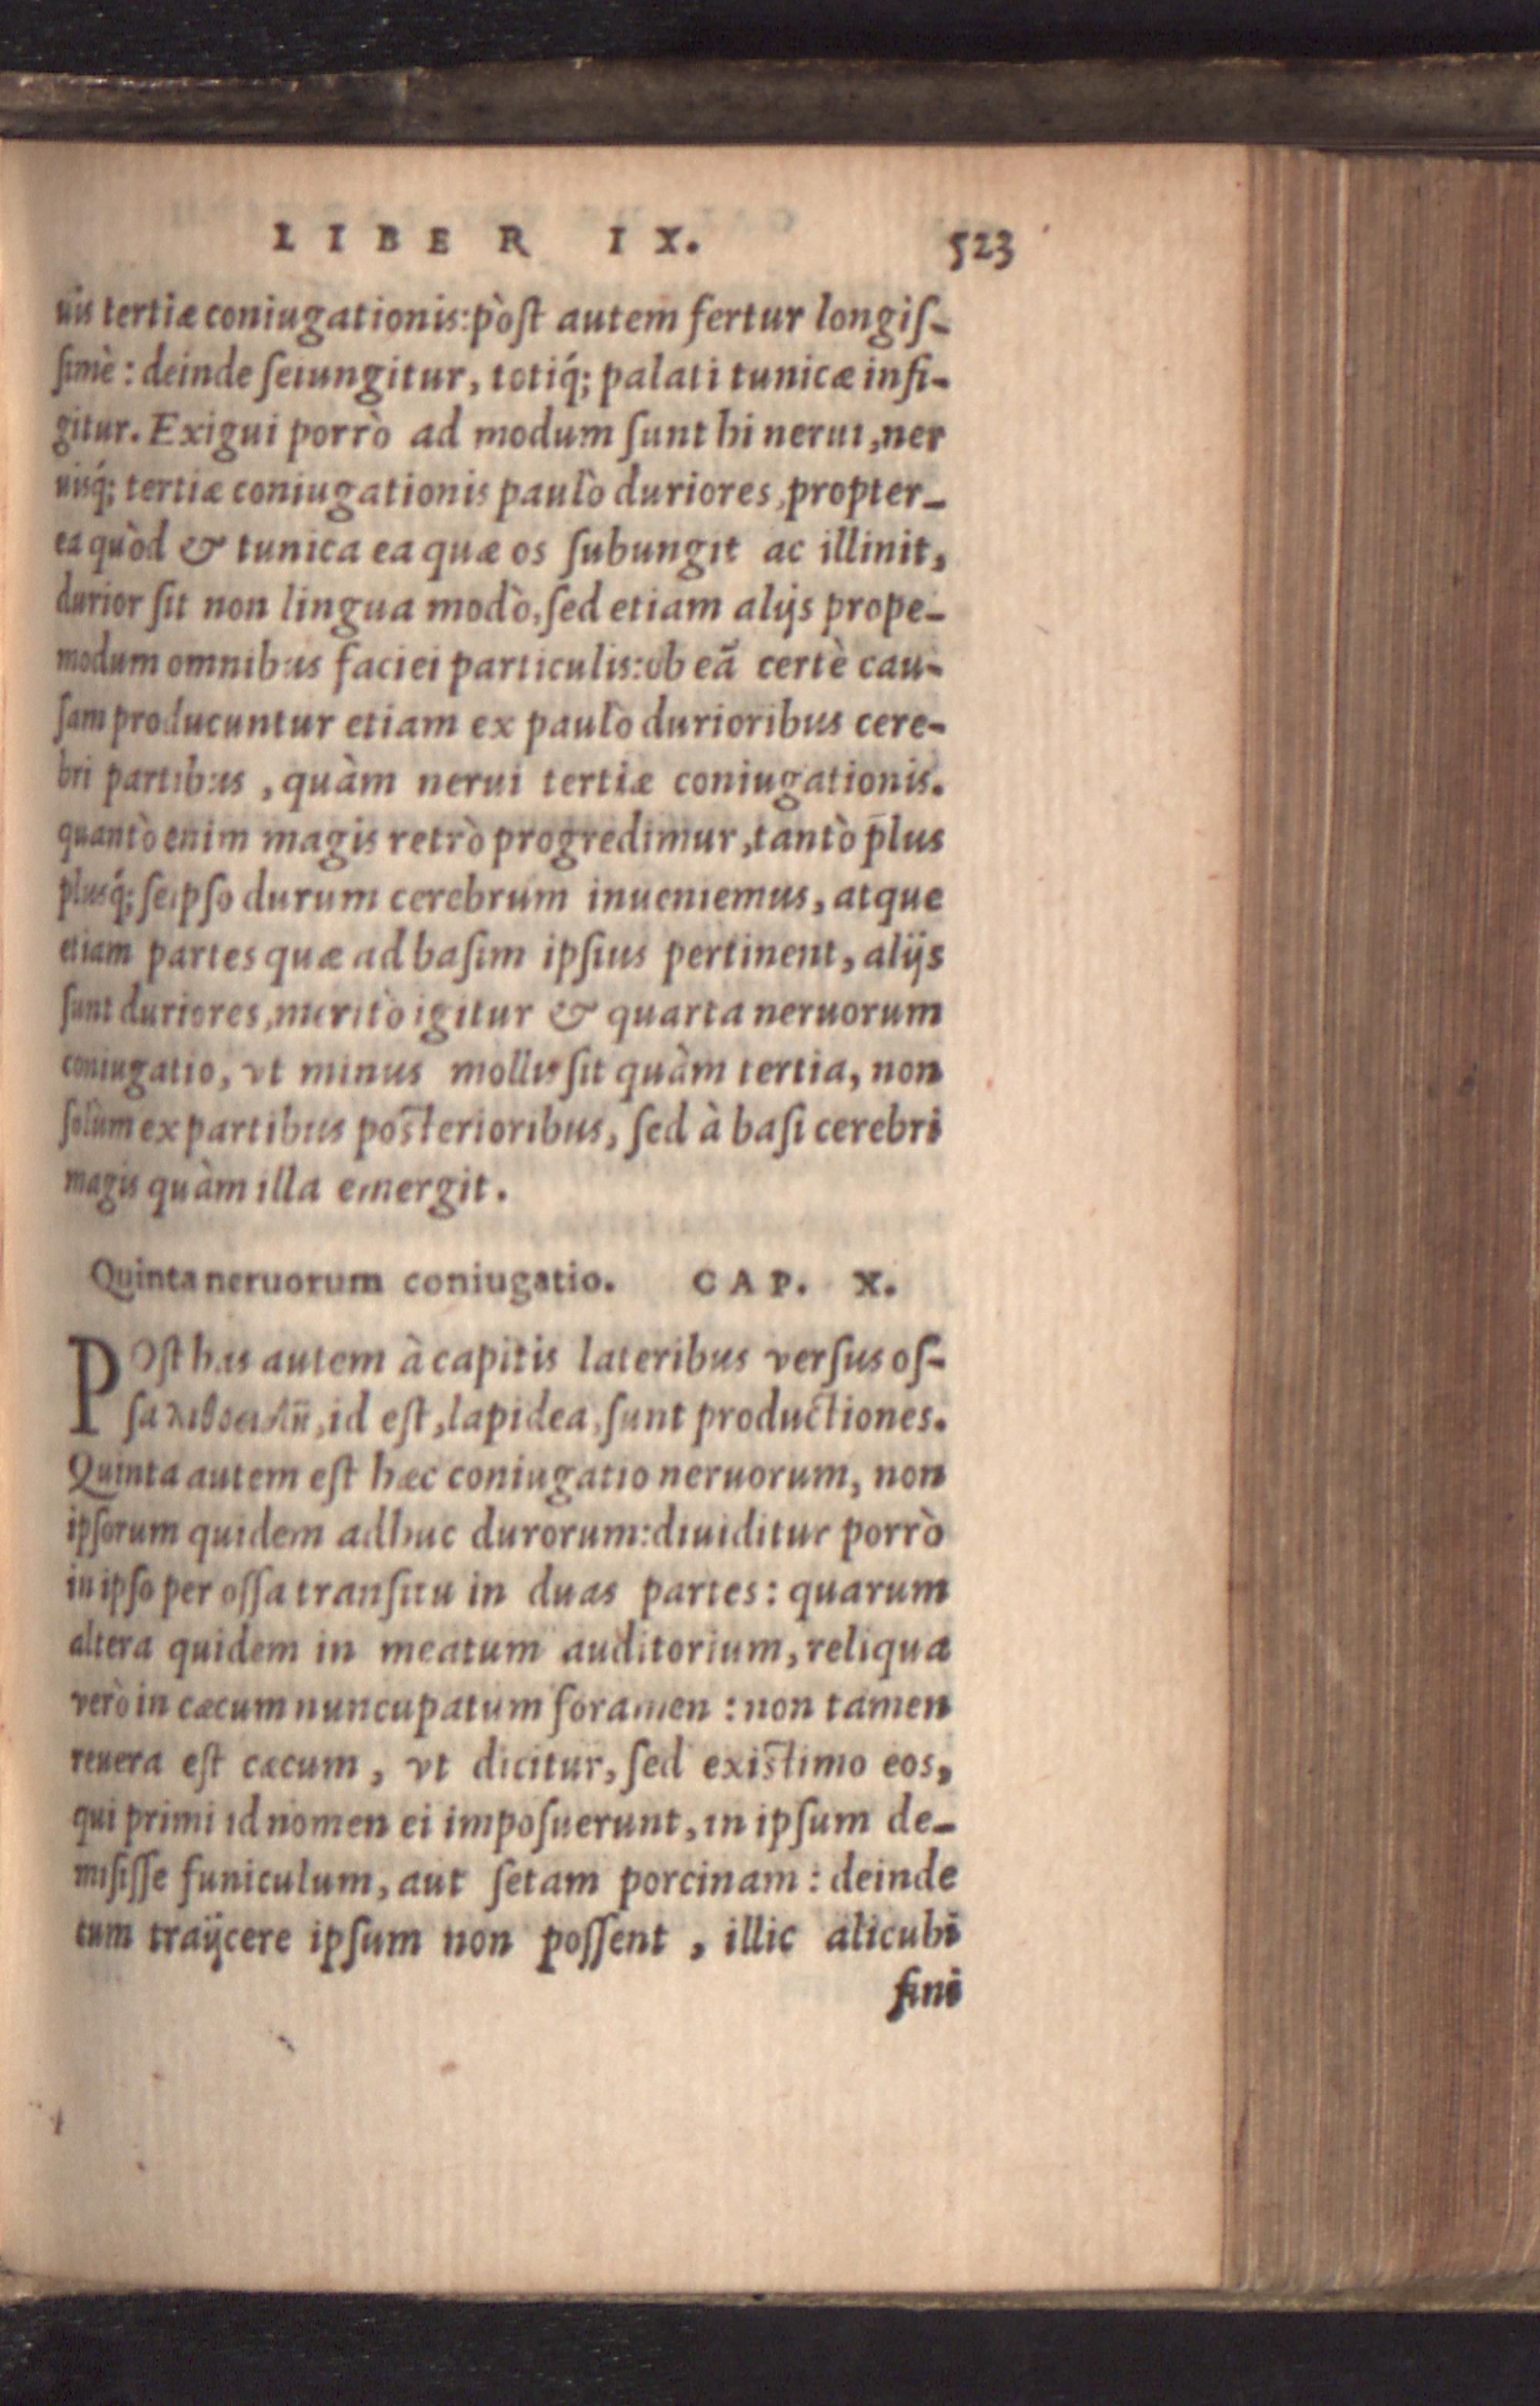 LIBER IX. 523
uis tertiæ coniugationis: pòst autem fertur longis-
simè: deinde seiungitur, totiq́; palati tunicæ infi-
gitur. Exigui porrò ad modum sunt hi nerui, ner
uisq́; tertiæ coniugationis paulò duriores, propter-
ea quòd & tunica ea quæ os subungit ac illinit,
durior sit non lingua modò, sed etiam alijs prope-
modum omnibus faciei particulis: ob eã certè cau-
sam producuntur etiam ex paulò durioribus cere-
bri partibus, quàm nerui tertiæ coniugationis.
quantò enim magis retrò progredimur, tantò plus
plusq́; seipso durum cerebrum inueniemus, atque
etiam partes quæ ad basim ipsius pertinent, alijs
sunt duriores, meritò igitur & quarta neruorum
coniugatio, vt minus mollis sit quàm tertia, non
solùm ex partibus posterioribus, sed à basi cerebri
magis quàm illa emergit.
Quinta neruorum coniugatio. CAP. X.
POst has autem à capitis lateribus versus os-
sa λιθοειδῆ, id est, lapidea, sunt productiones.
Quinta autem est hæc coniugatio neruorum, non
ipsorum quidem adhuc durorum: diuiditur porrò
in ipso per ossa transitu in duas partes: quarum
altera quidem in meatum auditorium, reliqua
verò in cæcum nuncupatum foramen: non tamen
reuera est cæcum, vt dicitur, sed existimo eos,
qui primi id nomen ei imposuerunt, in ipsum de-
misisse funiculum, aut setam porcinam: deinde
cum traijcere ipsum non possent, illic alicubi
fini